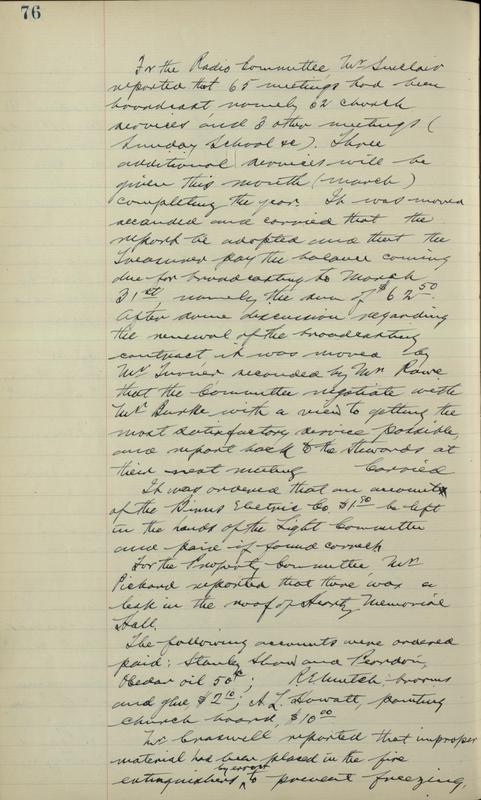 76
For the Radio Committee, Mr. Sinclair
reported that 65 meetings had been
broadcast namely 62 church
services and 3 other meetings (
Sunday School &c). Three
additional services will be
given this month (March)
completing the year. It was moved
seconded and carried that the
report be adopted and that the
Treasurer pay the balance coming
due for broadcasting to March
31st, namely the sum of $62.50.
After some discussion regarding
the renewal of the broadcasting
contract, it was moved by
Mr. Turner seconded by Mr. Rowe
that the Committee negotiate with
Mr. Burke with a view to getting the
most satisfactory service possible,
and report back to the Stewards at
their next meeting Carried
It was ordered that an account
of the Binns Electric Co. $1.50 be left
in the hands of the Light Committee
and paid if found correct.
For the Property Committee, Mr.
Pickard reported that there was a
leak in the roof of Heartz Memorial
Hall.
The following accounts were ordered
paid: Stanley Shaw and Peardon,
Ocedar oil 50c; R.E. Mutch, brooms
and glue, $2.10; A. L. Howatt, painting
church board, $10.00
Mr. Craswell reported that improper
material had been placed in the fire
extinguishers by error to prevent freezing,